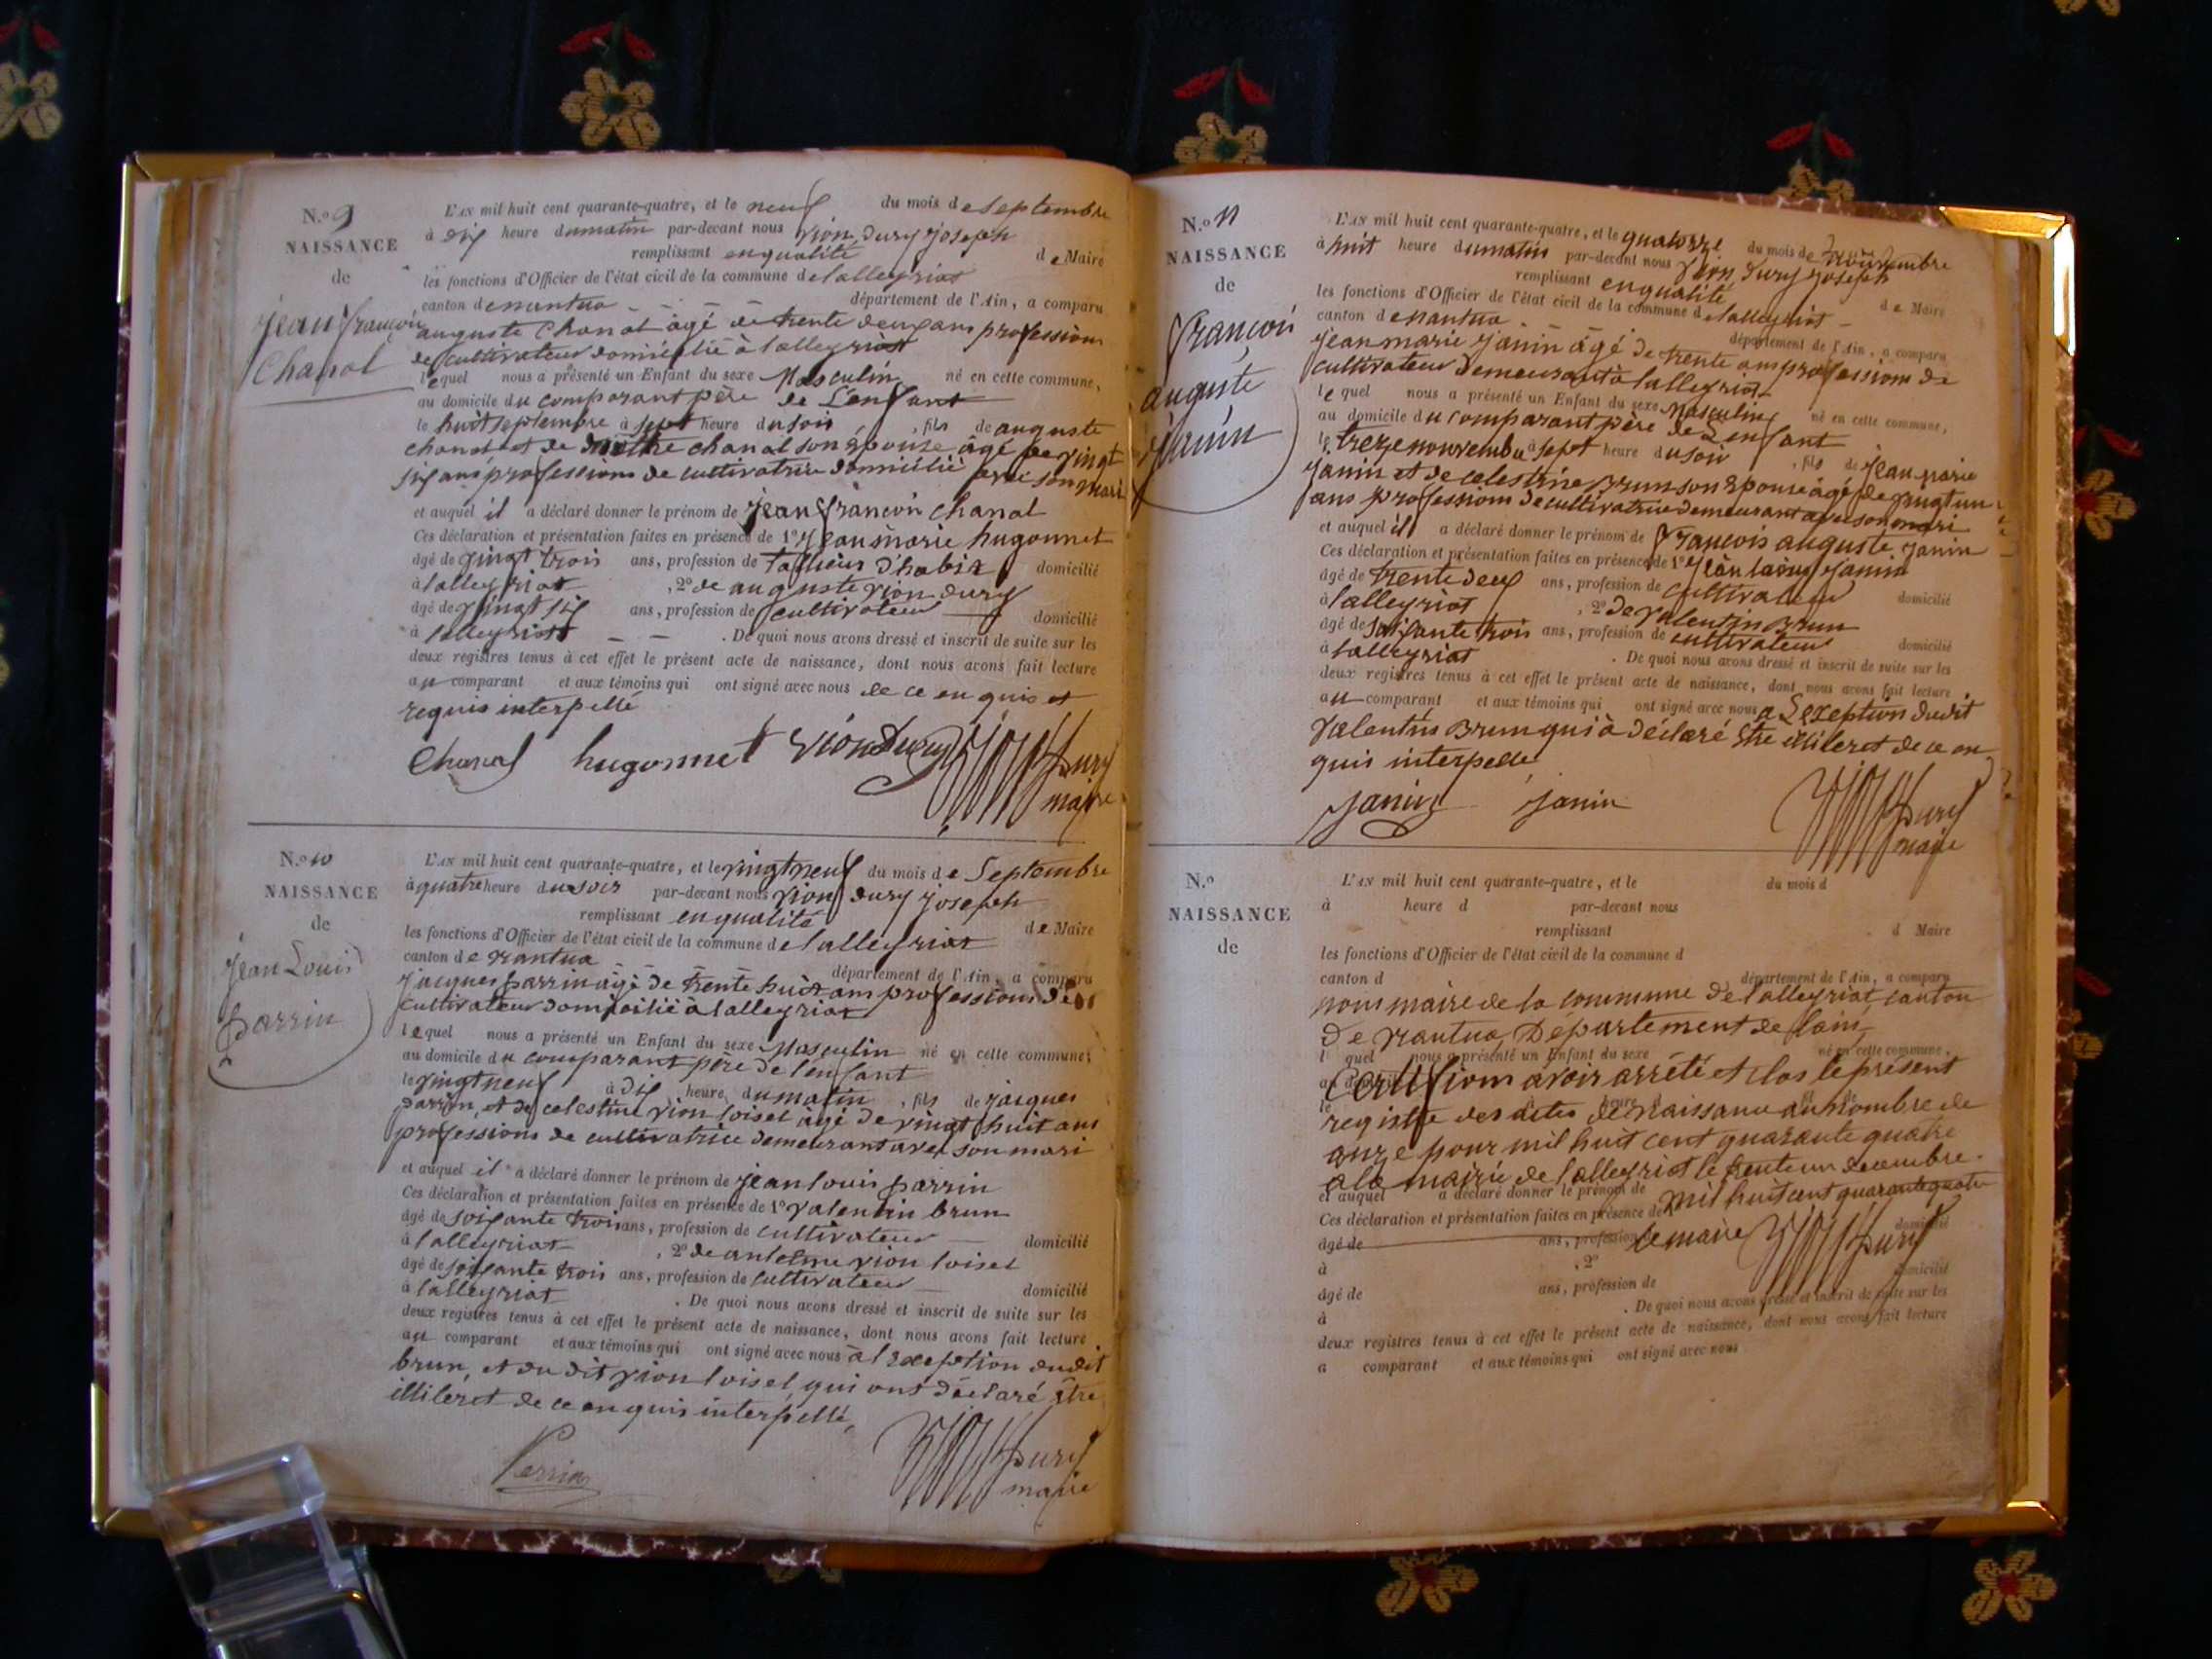 N.o 9
NAISSANCE
de
jean françois
Chanal
L'AN mil huit cent quarante-quatre, et le neuf du mois de Septembre
à dix heure du matin par-devant nous vion dury joseph
remplissant en qualité de Maire
les fonctions d'Officier de l'état civil de la commune de lalleyriat
canton de nantua département de l'Ain, a comparu
auguste Chanal âgé de trente deux ans profession
de cultivateur domicilié à lalleyriat
lequel nous a présenté un Enfant du sexe Masculin né en cette commune,
au domicile du comparant père de L'enfant
le huit septembre à sept heure du soir, fils de auguste
chanal et de chanal son épouse âgé de vingt
six ans profession de cultivatrice domicilié avec son mari
et auquel il a déclaré donner le prénom de jean françois chanal
Ces déclaration et présentation faites en présence de 1° jean marie hugonnet
âgé de vingt trois ans, profession de tallieur d'habit domicilié
à lalleyriat, 2° de auguste vion dury
âgé de vingt six ans, profession de cultivateur domicilié
à lalleyriat. De quoi nous avons dressé et inscrit de suite sur les
deux registres tenus à cet effet le présent acte de naissance, dont nous avons fait lecture
au comparant et aux témoins qui ont signé avec nous de ce en quis et
requis interpellé
Chanal hugonnet vion dury Dury
maire
N.o 10
NAISSANCE
de
jean Louis
parrin
L'AN mil huit cent quarante-quatre, et le vingt neuf du mois de Septembre
à quatre heure du soir par-devant nous vion dury joseph
remplissant en qualité de Maire
les fonctions d'Officier de l'état civil de la commune de lalleyriat
canton de nantua département de l'Ain, a comparu
jacques parrin âgé de trente huit ans profession de
cultivateur domicilié à lalleyriat
lequel nous a présenté un Enfant du sexe Masculin né en cette commune,
au domicile du comparant père de l'enfant
le vingt neuf à dix heure du matin, fils de jacques
parrin et de celestine vion loisel âgé de vingt huit ans
profession de cultivatrice demeurant avec son mari
et auquel il a déclaré donner le prénom de jean louis parrin
Ces déclaration et présentation faites en présence de 1° valentin brun
âgé de soixante trois ans, profession de cultivateur domicilié
à lalleyriat, 2° de antelme vion loisel
âgé de soixante trois ans, profession de cultivateur domicilié
à lalleyriat. De quoi nous avons dressé et inscrit de suite sur les
deux registres tenus à cet effet le présent acte de naissance, dont nous avons fait lecture
au comparant et aux témoins qui ont signé avec nous à l'exception dudit
brun, et du dit vion loisel, qui ont déclaré être
illileret de ce en quis interpellé,
Perrin Dury
maire
N.o 11
NAISSANCE
de
françois
auguste
janin
L'AN mil huit cent quarante-quatre, et le quatorze du mois de novembre
à huit heure du matin par-devant nous vion dury joseph
remplissant en qualité de Maire
les fonctions d'Officier de l'état civil de la commune de lalleyriat
canton de nantua département de l'Ain, a comparu
jean marie janin âgé de trente ans profession de
cultivateur demeurant à lalleyriat
lequel nous a présenté un Enfant du sexe Masculin né en cette commune,
au domicile du comparant père de L'enfant
le treze novembre à sept heure du soir, fils de jean marie
janin et de celestine Brun son épouse âgé de vingt un
ans profession de cultivatrice demeurant avec son mari
et auquel il a déclaré donner le prénom de françois auguste janin
Ces déclaration et présentation faites en présence de 1° jean janin
âgé de trente deux ans, profession de cultivateur domicilié
à lalleyriat, 2° de valentin Brun
âgé de soixante trois ans, profession de cultivateur domicilié
à lalleyriat. De quoi nous avons dressé et inscrit de suite sur les
deux registres tenus à cet effet le présent acte de naissance, dont nous avons fait lecture
au comparant et aux témoins qui ont signé avec nous a L'exception dudit
valentin Brun qui à déclaré être illileret de ce en
quis interpellé
janin janin Dury
maire
N.o
NAISSANCE
de
L'AN mil huit cent quarante-quatre, et le du mois d
à heure d par-devant nous
remplissant d Maire
les fonctions d'Officier de l'état civil de la commune d
canton d département de l'Ain, a comparu
nous maire de la commune de lalleyriat canton
de nantua, Département de lain,
l quel nous a présenté un Enfant du sexe né en cette commune,
Certifions avoir arrêté et clos le présent
registre des actes de naissance au nombre de
onze pour mil huit cent quarante quatre
a la mairie de lalleyriat le trente un decembre
et auquel a déclaré donner le prénom de mil huit cent quarante quatre
Ces déclaration et présentation faites en présence de
âgé de ans, profession le maire Dury domicilié
à , 2° domicilié
âgé de ans, profession de
à . De quoi nous avons dressé et inscrit de suite sur les
deux registres tenus à cet effet le présent acte de naissance, dont nous avons fait lecture
a comparant et aux témoins qui ont signé avec nous